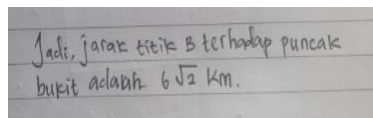 Jadi, jarak titik B terhadap puncak
bukit adalah 6√2 km.